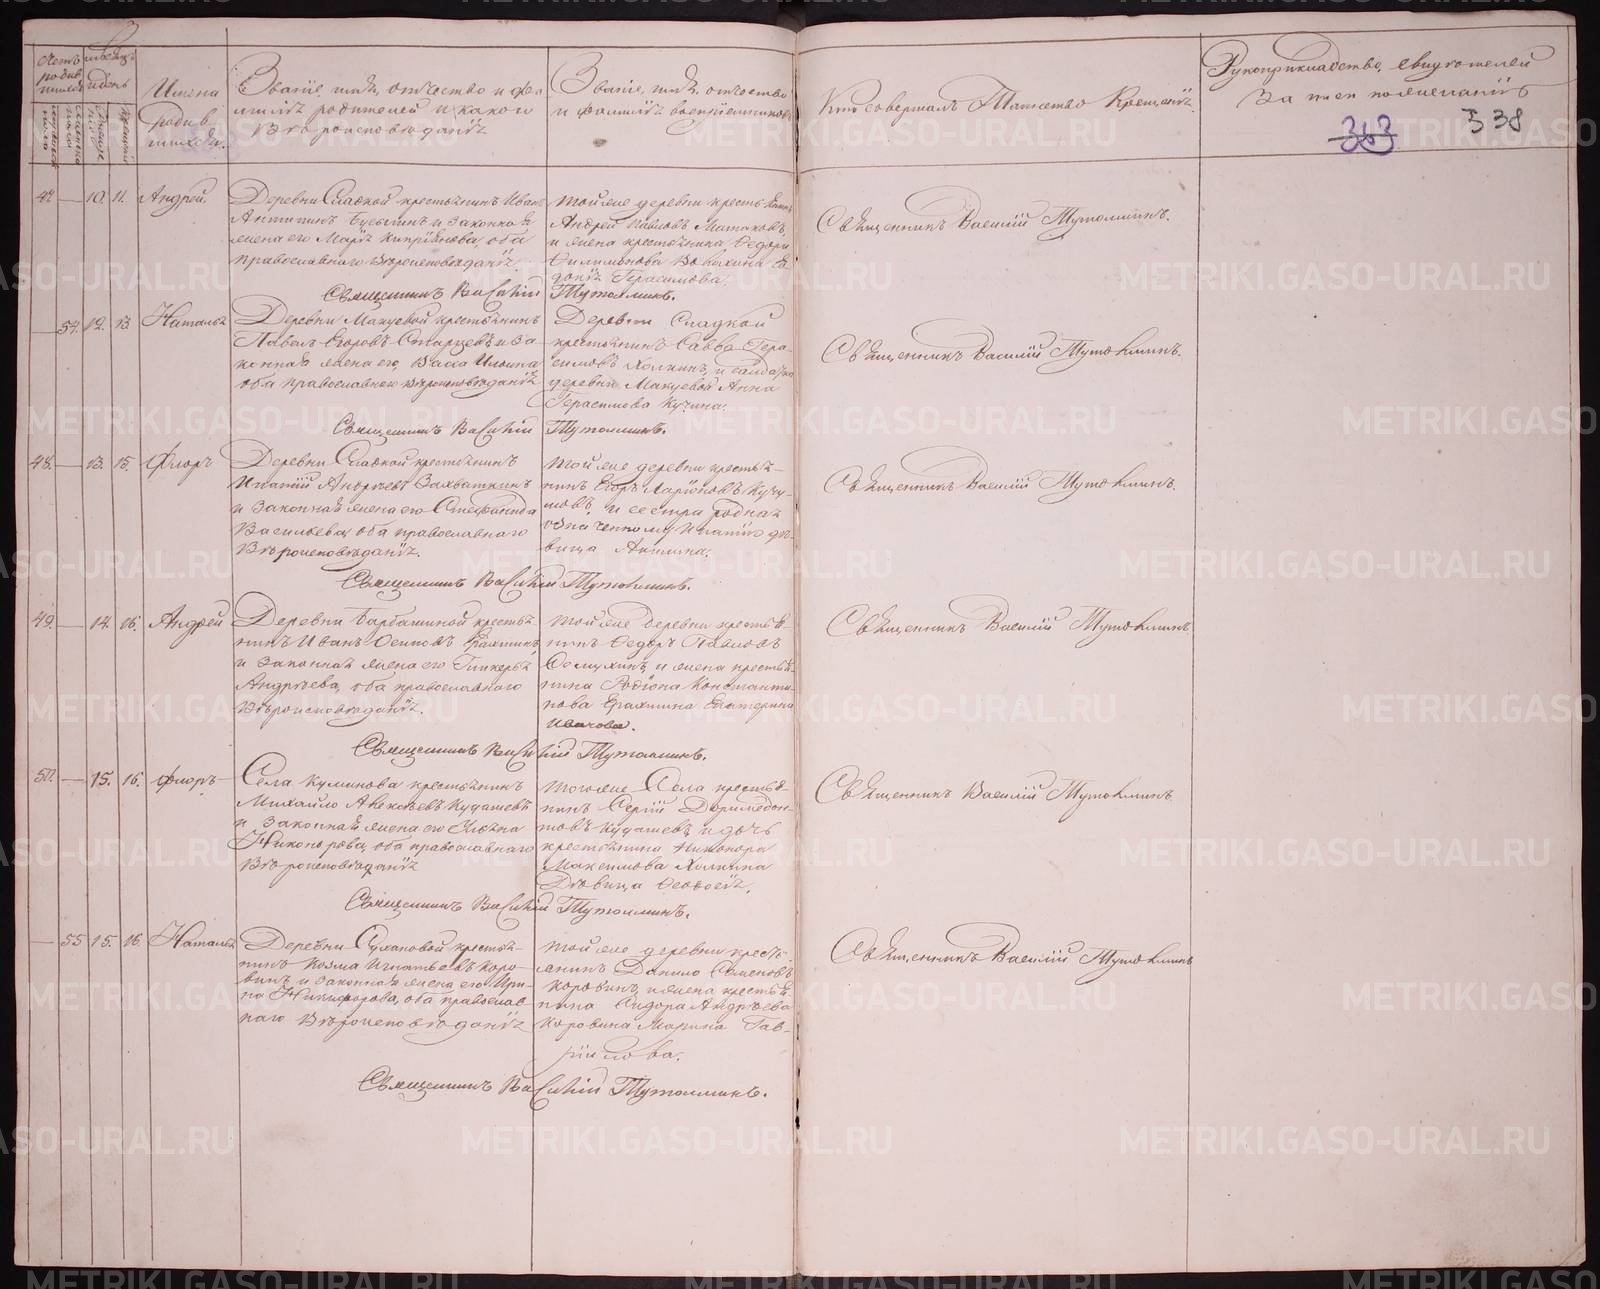 Имена родившихся.
Званіе, имя, отчество и фамилія родителей и какого Вѣроисповѣданія
Званіе, имя, отчество и фамилія воспріемниковъ
Кто совершалъ Таинство Крещенія.
Рукоприкладство свидѣтелей
За писи по желанію
343
338
10. 11. Андрей.
Деревни Сладкой крестьянинъ Иванъ
и законная
жена его Марія Кипріянова, оба
православнаго Вѣроисповѣданія.
Тойже деревни крестьянинъ
Андрей Павловъ
и жена крестьянина Федора
Филимонова
Герасимова.
Священникъ Василій Тутолминъ.
Священникъ Василій Тутолминъ.
54. 12. 13 Наталья
Деревни Макуевой крестьянинъ
Павелъ Егоровъ Старцевъ и за-
конная жена его, Васса Ильина
оба православнаго Вѣроисповѣданія
Деревни Сладкой
крестьянинъ Савва Гера-
симовъ Холкинъ, и солдатка
деревни Макуевой Анна
Герасимова Кучина.
Священникъ Василій Тутолминъ.
Священникъ Василій Тутолминъ.
48. 13. 15. Флоръ
Деревни Сладкой крестьянинъ
Ипатій Андреевъ Захваткинъ
и законная жена его Стефанида
Васильева, оба православнаго
Вѣроисповѣданія.
Тойже деревни крестья-
нинъ Егоръ Ларіоновъ
и сестра родная
означенному Ипатію дѣ-
вица Акилина.
Священникъ Василій Тутолминъ.
Священникъ Василій Тутолминъ.
49. 14. 16. Андрей
Деревни Барбашиной крестья-
нинъ Иванъ Осиповъ Ерахтинъ
и законная жена его Гликерья
Андреева, оба православнаго
Вѣроисповѣданія.
Тойже деревни крестья-
нинъ Федоръ Павловъ
и жена крестья-
нина Родіона Константи-
нова Ерахтина Екатерина
Иванова.
Священникъ Василій Тутолминъ.
Священникъ Василій Тутолминъ
50. 15. 16. Флоръ
Села Куминова крестьянинъ
Михайло Алексѣевъ Кудашевъ
и законная жена его Ульяна
Никонорова, оба православнаго
Вѣроисповѣданія
Тогоже Села крестья-
нинъ Сергій Доримедон-
товъ Кудашевъ, и дочь
крестьянина Никонора
Максимова Холкина
Дѣвица Феодосія.
Священникъ Василій Тутолминъ.
Священникъ Василій Тутолминъ.
55 15. 16. Наталья
Деревни Сухановой крестья-
нинъ Козма Игнатьевъ Коро-
винъ и законная жена его Ири-
на Никифорова, оба православ-
наго Вѣроисповѣданія
Тойже деревни кресть-
янинъ Данило Семеновъ
Коровинъ, и жена крестья-
нина Сидора Андреева
Коровина Марина Гав-
риілова.
Священникъ Василій Тутолминъ.
Священникъ Василій Тутолминъ
METRIKI.GASO-URAL.RU